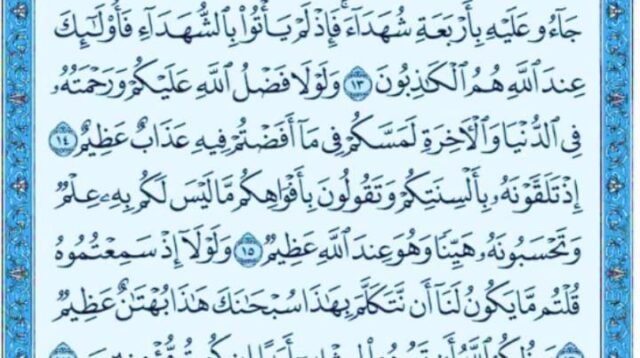 جَآءُو عَلَيْهِ بِأَرْبَعَةِ شُهَدَآءَۚ فَإِذْ لَمْ يَأْتُوا۟ بِٱلشُّهَدَآءِ فَأُو۟لَـٰٓئِكَ
عِندَ ٱللَّهِ هُمُ ٱلْكَـٰذِبُونَ ١٣ وَلَوْلَا فَضْلُ ٱللَّهِ عَلَيْكُمْ وَرَحْمَتُهُۥ
فِى ٱلدُّنْيَا وَٱلْـَٔاخِرَةِ لَمَسَّكُمْ فِى مَآ أَفَضْتُمْ فِيهِ عَذَابٌ عَظِيمٌ ١٤
إِذْ تَلَقَّوْنَهُۥ بِأَلْسِنَتِكُمْ وَتَقُولُونَ بِأَفْوَاهِكُم مَّا لَيْسَ لَكُم بِهِۦ عِلْمٌ
وَتَحْسَبُونَهُۥ هَيِّنًا وَهُوَ عِندَ ٱللَّهِ عَظِيمٌ ١٥ وَلَوْلَآ إِذْ سَمِعْتُمُوهُ
قُلْتُم مَّا يَكُونُ لَنَآ أَن نَّتَكَلَّمَ بِهَـٰذَا سُبْحَـٰنَكَ هَـٰذَا بُهْتَـٰنٌ عَظِيمٌ